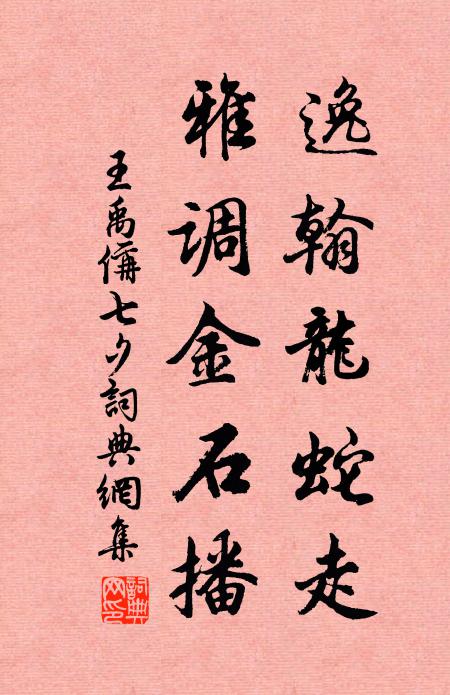 逸翰龍蛇走
雅调金石播
王禹偁七夕詞典網集
詞典网印